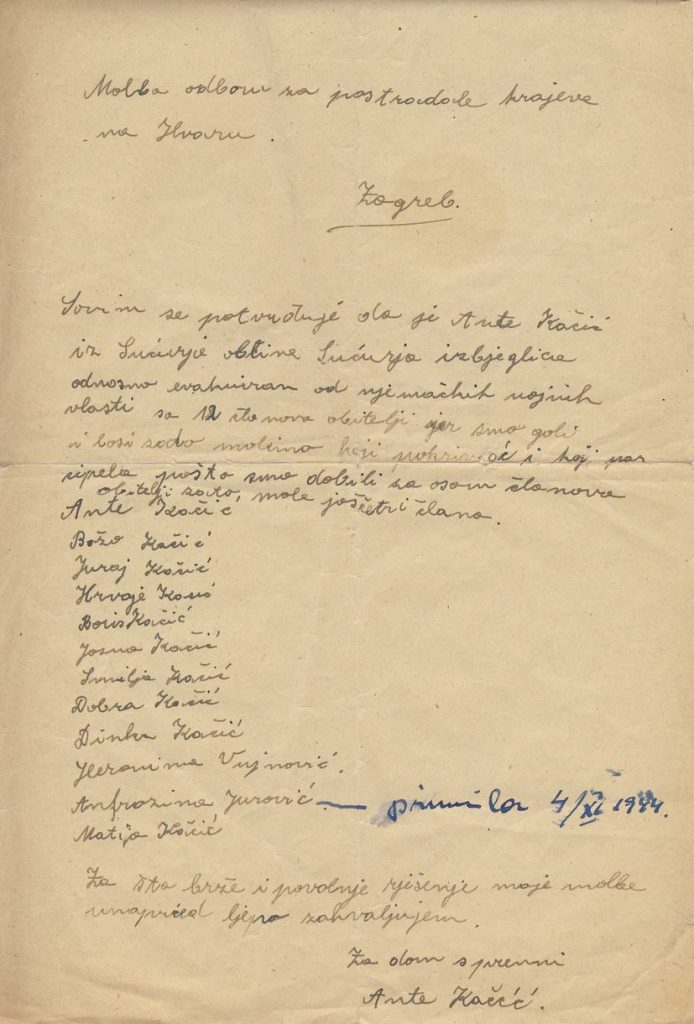 Molba odboru za postradale krajeve
na Hvaru.
Zagreb.
Sovim se potvrđuje da je Ante Kačić
iz Sućurja obćine Sućurja izbjeglica
odnosno evakuiran od njemačkih vojnih
vlasti sa 12 članova obitelji jer smo goli
i bosi zato molimo koji pokrivać i koji par
cipela pošto smo dobili za osam članova
obitelji zato, mole još četri člana.
Ante Kačić
Božo Kačić
Juraj Kačić
Hrvoje Kačić
Boris Kačić
Josna Kačić
Smilja Kačić
Dobra Kačić
Dinka Kačić
Jeronima Vujnović.
Anfrozina Jurović — primila 4/XI 1944.
Matija Kačić
Za što brže i povolnje rješenje moje molbe
unapried ljepo zahvaljujem.
Za dom spremni
Ante Kačić.